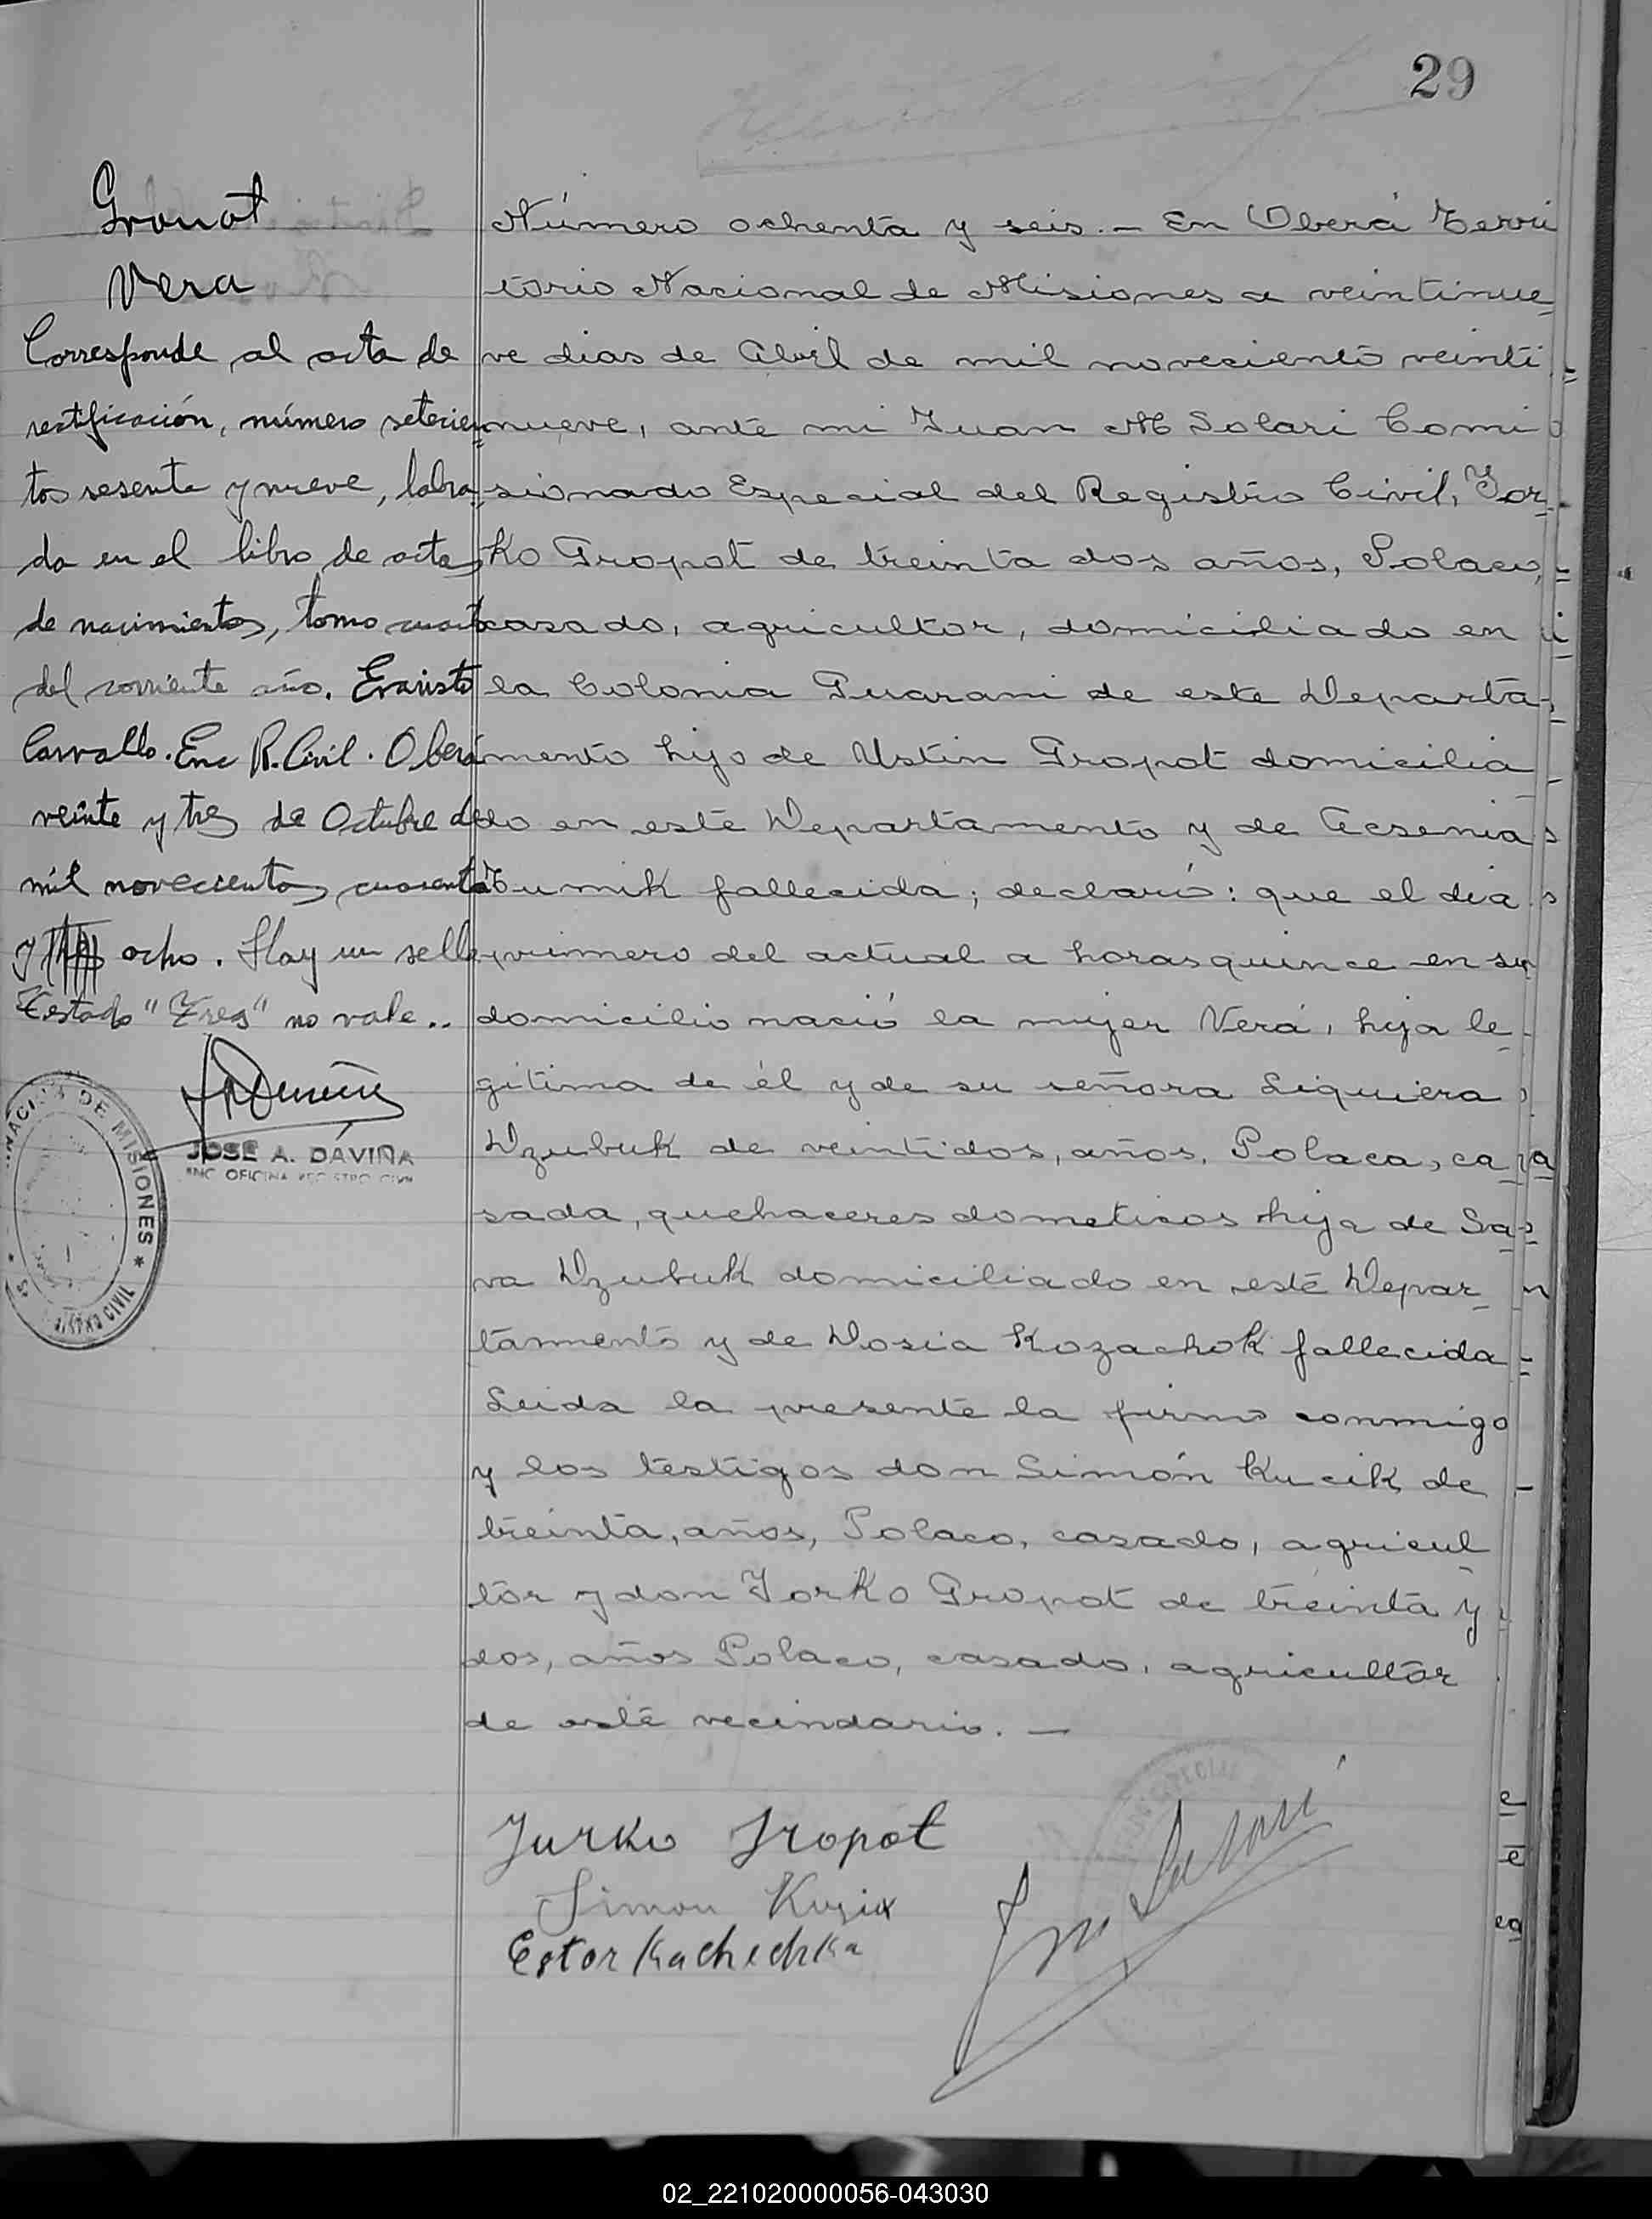 29
Gronot
Vera
Corresponde al acta de
rectificación, número setecien
tos sesenta y nueve, labra
da en el libro de actas
de nacimientos, tomo cuarto
del corriente año. Evaristo
Carvallo. Enc R. Civil. Oberá
veinte y tres de Octubre de
mil novecientos cuarenta
y tres ocho. Hay un sello
Testado "Tres" no vale..
JOSE A. DAVIÑA
ENC OFICINA REGISTRO CIVIL
DE MISIONES * CIVIL
Número ochenta y seis. — En Oberá Terri
torio Nacional de Misiones a veintinue
ve dias de Abril de mil noveciento veinti
nueve, ante mi Juan M Solari Comi
sionado Especial del Registro Civil, Jor-
ko Gropot de treinta dos años, Polaco,
casado, agricultor, domiciliado en
la Colonia Guarani de este Departa-
mento hijo de Ustin Gropot domicilia
do en este Departamento y de Acsenia
Tumik fallecida; declaró: que el dia
primero del actual a horas quince en su
domicilio nació la mujer Verá, hija le-
gitima de él y de su señora Liquiera
Dzubuk de veintidos, años, Polaca, ca
sada, quehaceres dometicos hija de Sa-
va Dzubuk domiciliado en este Depar-
tamento y de Dosia Kozachok fallecida
Leida la presente la firmo conmigo
y los testigos don Simón Kucik de
treinta, años, Polaco, casado, agricul
tor y don Jorko Gropot de treinta y
dos, años Polaco, casado, agricultor
de este vecindario. —
Jurko Gropot
Simon Kuzix
Estor Kachechka
Jn M Solari
02_221020000056-043030